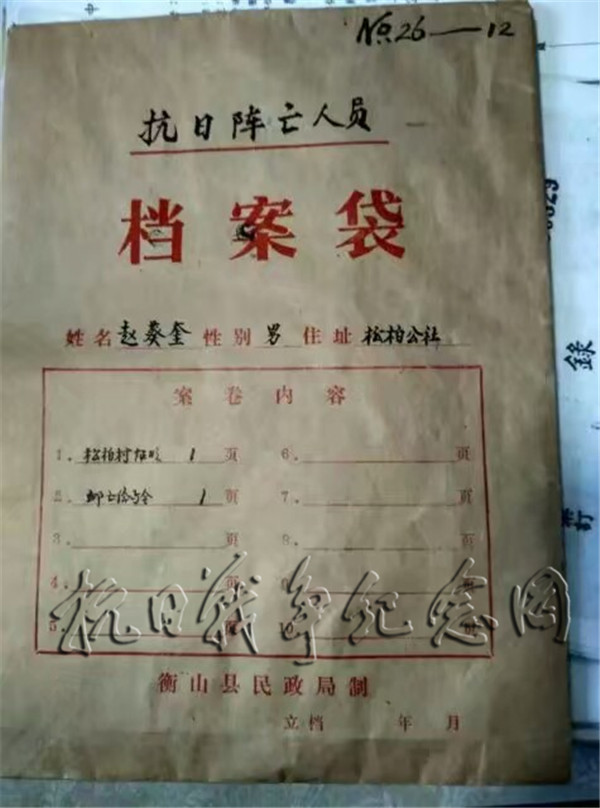 №26—12
抗日阵亡人员
档案袋
姓名 赵葵奎 性别 男 住址 松柏公社
案卷内容
1. 松柏村证明 1 页 6. 页
2. 1 页 7. 页
3. 页 8. 页
4. 页 9. 页
5. 页 10. 页
抗日战争纪念网
衡山县民政局制
立档 年 月
錄